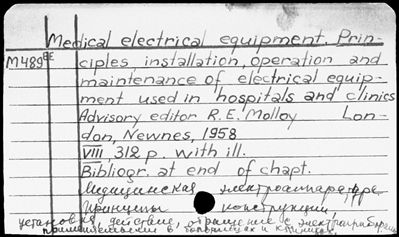 Medical electrical equipment. Prin-
M489EE ciples, installation, operation and
maintenance of electrical equip-
ment used in hospitals and clinics
Advisory editor R.E. Molloy Lon-
don, Newnes, 1958
VIII, 312 p. with ill.
Bibliogr. at end of chapt.
Медицинская
Принципы конструкции,
установка, действие, обращение с
в больницах и клиниках